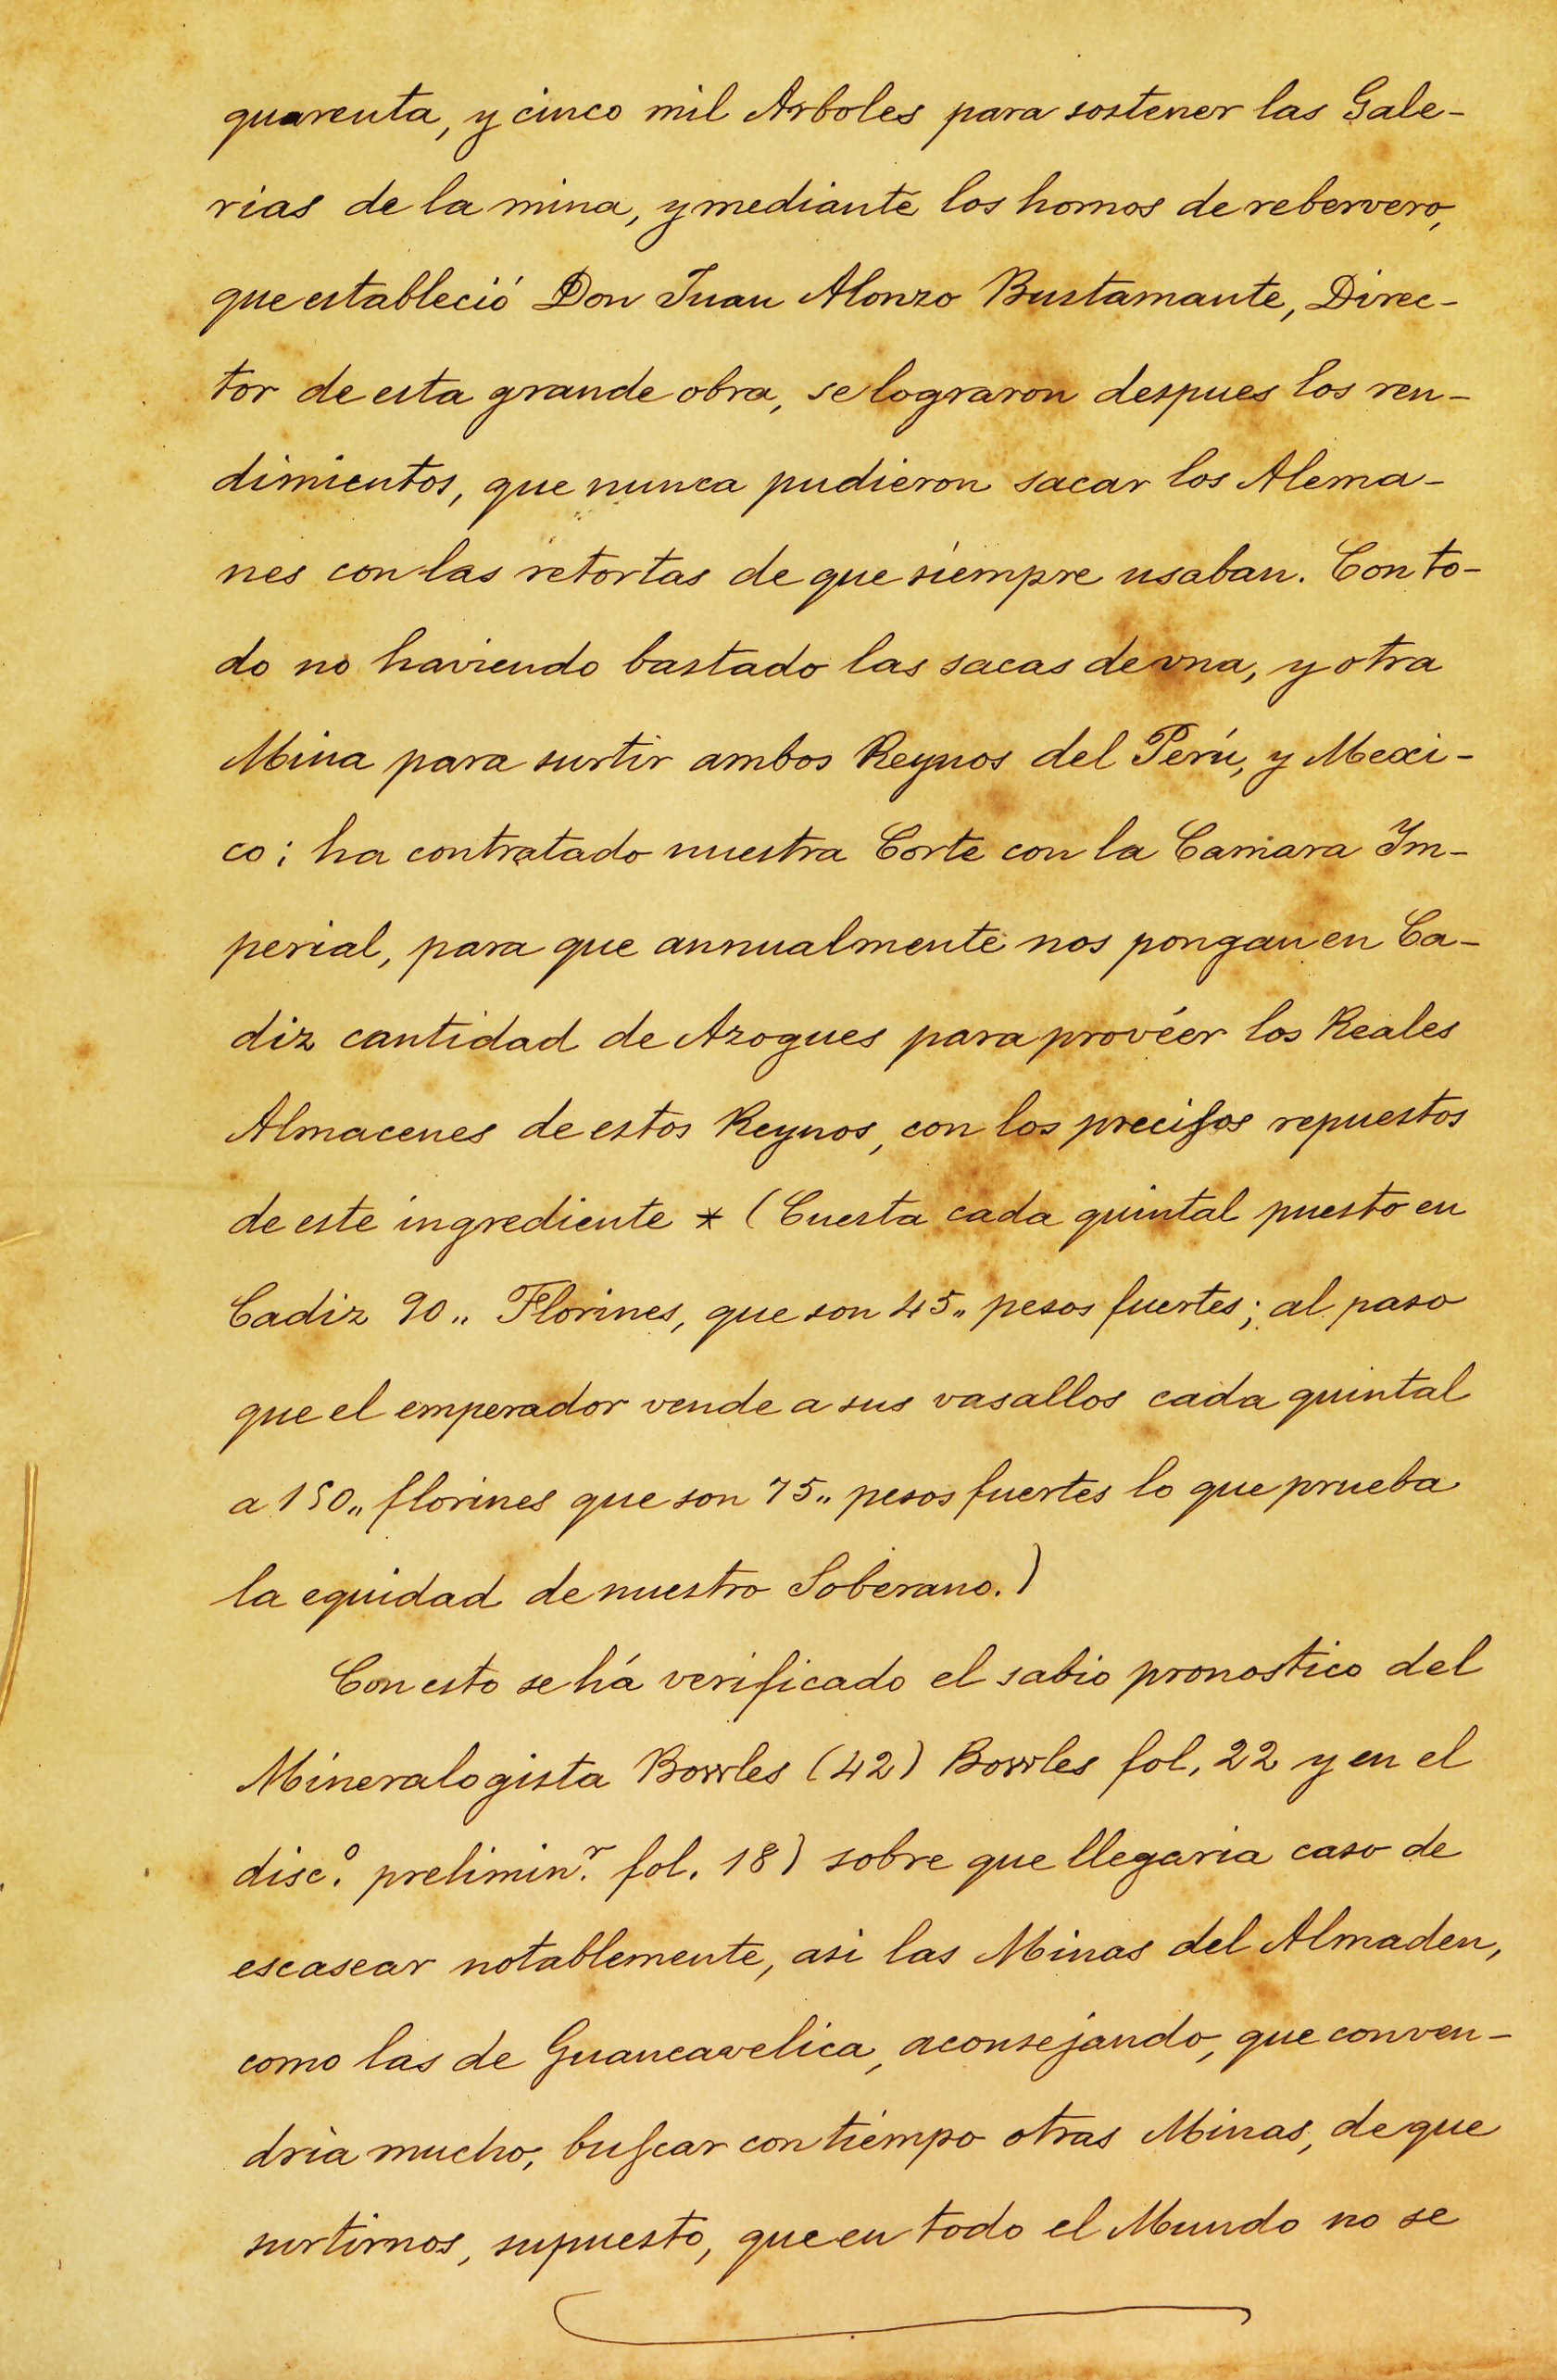 quarenta, y cinco mil Arboles para sostener las Gale-
rias de la mina, y mediante los hornos de rebervero,
que estableció Don Juan Alonzo Bustamante, Direc-
tor de esta grande obra, se lograron despues los ren-
dimientos, que nunca pudieron sacar los Alema-
nes con las retortas de que siempre usaban. Con to-
do no haviendo bastado las sacas de vna, y otra
Mina para surtir ambos Reynos del Perú, y Mexi-
co; ha contratado nuestra Corte con la Camara Im-
perial, para que annualmente nos pongan en Ca-
diz cantidad de Azogues para provéer los Reales
Almacenes de estos Reynos, con los preciſos repuestos
de este ingrediente * (Cuesta cada quintal puesto en
Cadiz 90,, Florines, que son 45,, pesos fuertes; al paso
que el emperador vende a sus vasallos cada quintal
a 150,, florines que son 75,, pesos fuertes lo que prueba
la equidad de nuestro Soberano.)
Con esto se há verificado el sabio pronostico del
Mineralogista Bowles (42) Bowles fol, 22 y en el
disc.º prelimin.r fol. 18) sobre que llegaria caso de
escasear notablemente, asi las Minas del Almaden,
como las de Guancavelica, aconsejando, que conven-
dria mucho, buſcar con tiempo otras Minas, de que
surtirnos, supuesto, que en todo el Mundo no se